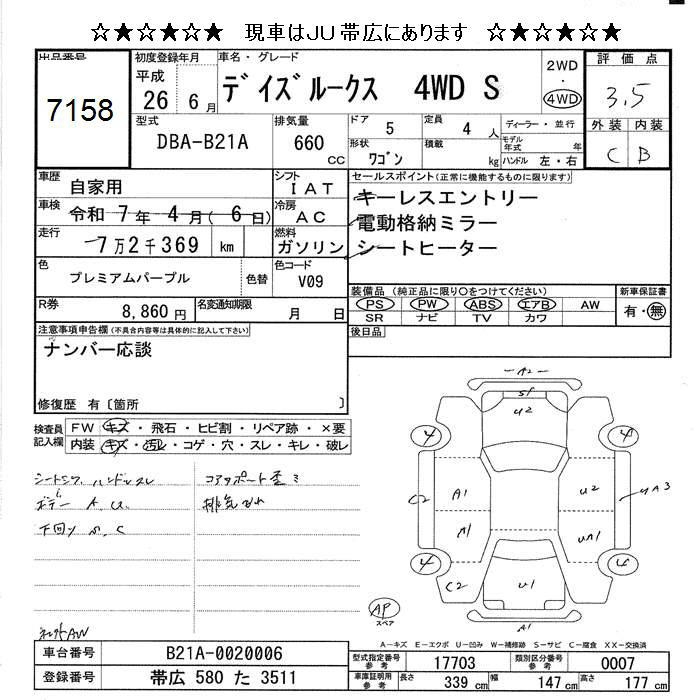 ☆★☆★☆★ 現車はJU帯広にあります ☆★☆★☆★
出品番号
7158
初度登録年月
平成
26 6 月
車名・グレード
デイズルークス 4WD S
2WD
・
4WD
評価点
3.5
外装 内装
C B
型式
DBA-B21A
排気量
660
CC
ドア
5
定員
4 人
ディーラー・並行
形状
ワゴン
積載
kg
モデル年式 年
ハンドル 左・右
車歴
自家用
シフト
IAT
車検
令和 7年 4月 ( 6 日)
冷房
AC
走行
7万2千369 km
燃料
ガソリン
色
プレミアムパープル
色替
色コード
V09
R券
8,860円
名変通知期限
月 日
セールスポイント(正常に機能するものに限ります)
キーレスエントリー
電動格納ミラー
シートヒーター
装備品 (純正品に限り○をつけてください)
PS PW ABS エアB AW
SR ナビ TV カワ
新車保証書
有・無
後日品
注意事項申告欄(不具合内容等は具体的に記入して下さい)
ナンバー応談
修復歴 有〔箇所 〕
検査員記入欄
FW キズ・飛石・ヒビ割・リペア跡・×要
内装 キズ・汚レ・コゲ・穴・スレ・キレ・破レ
ハンドルスレ
ボデー A U
下回り S、C
コアサポート歪ミ
A2
U2
4 4
C2
A1
U2
A3
A1
UA1
4
C2
U1
A1
AP
スペア
A-キズ E-エクボ U-凹み W-補修跡 S-サビ C-腐食 XX-交換済
車台番号
B21A-0020006
登録番号
帯広 580 た 3511
型式指定番号
参考
17703
類別区分番号
参考
0007
車庫証明用
参考
長さ
339 cm
幅
147 cm
高さ
177 cm